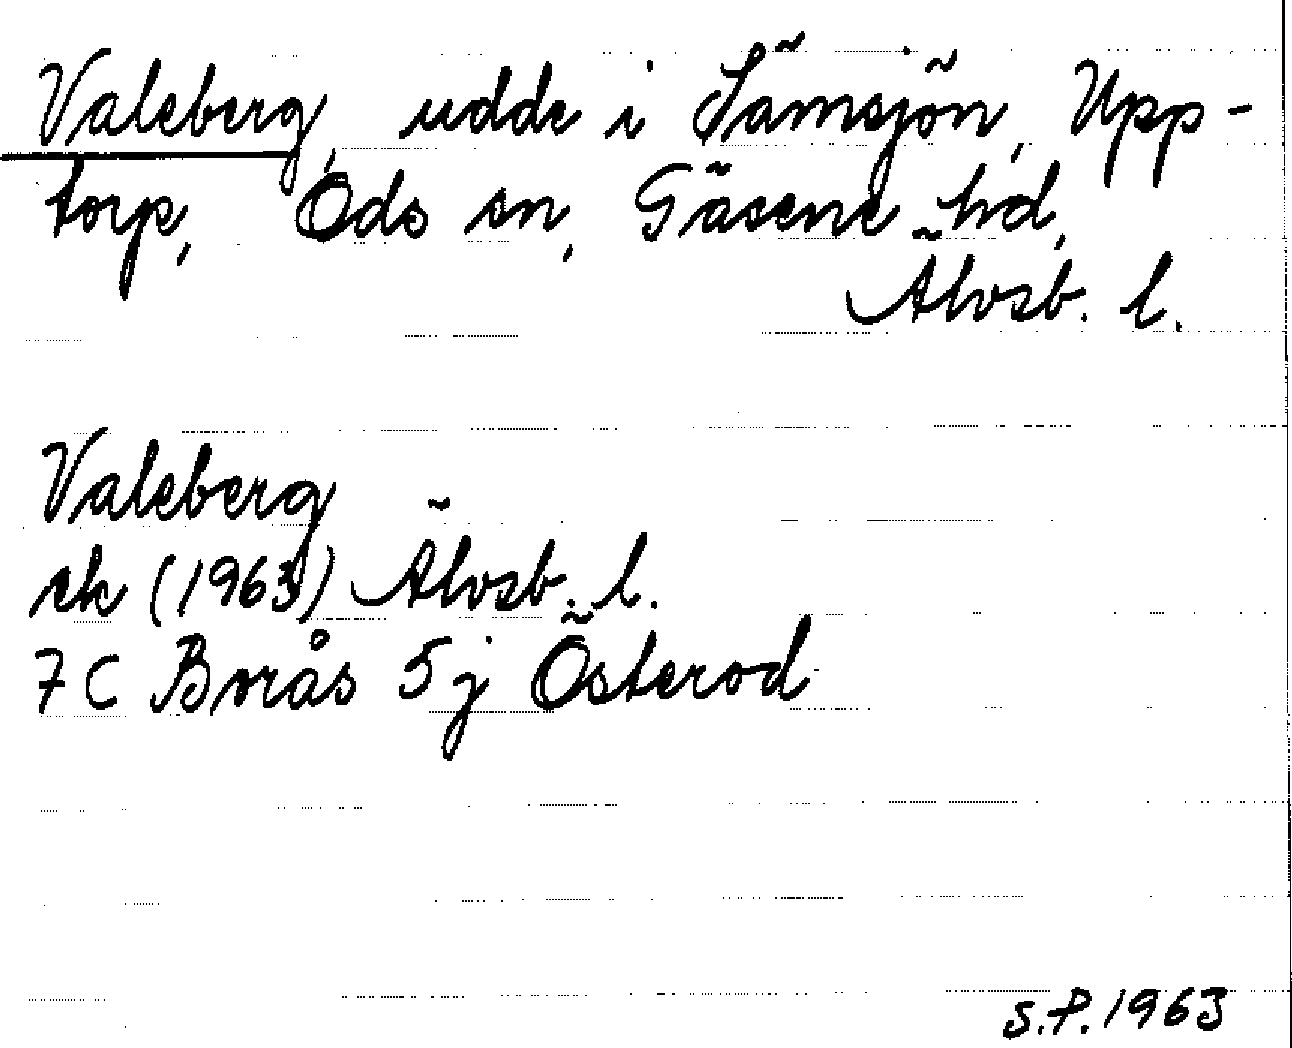 Valeberg, udde i Sämsjön, Upp-
torp, Öds sn, Gäsene hd,
Älvsb. l.
Valeberg
ek (1963) Älvsb. l.
7 C Borås 5 j Österod
S.P. 1963